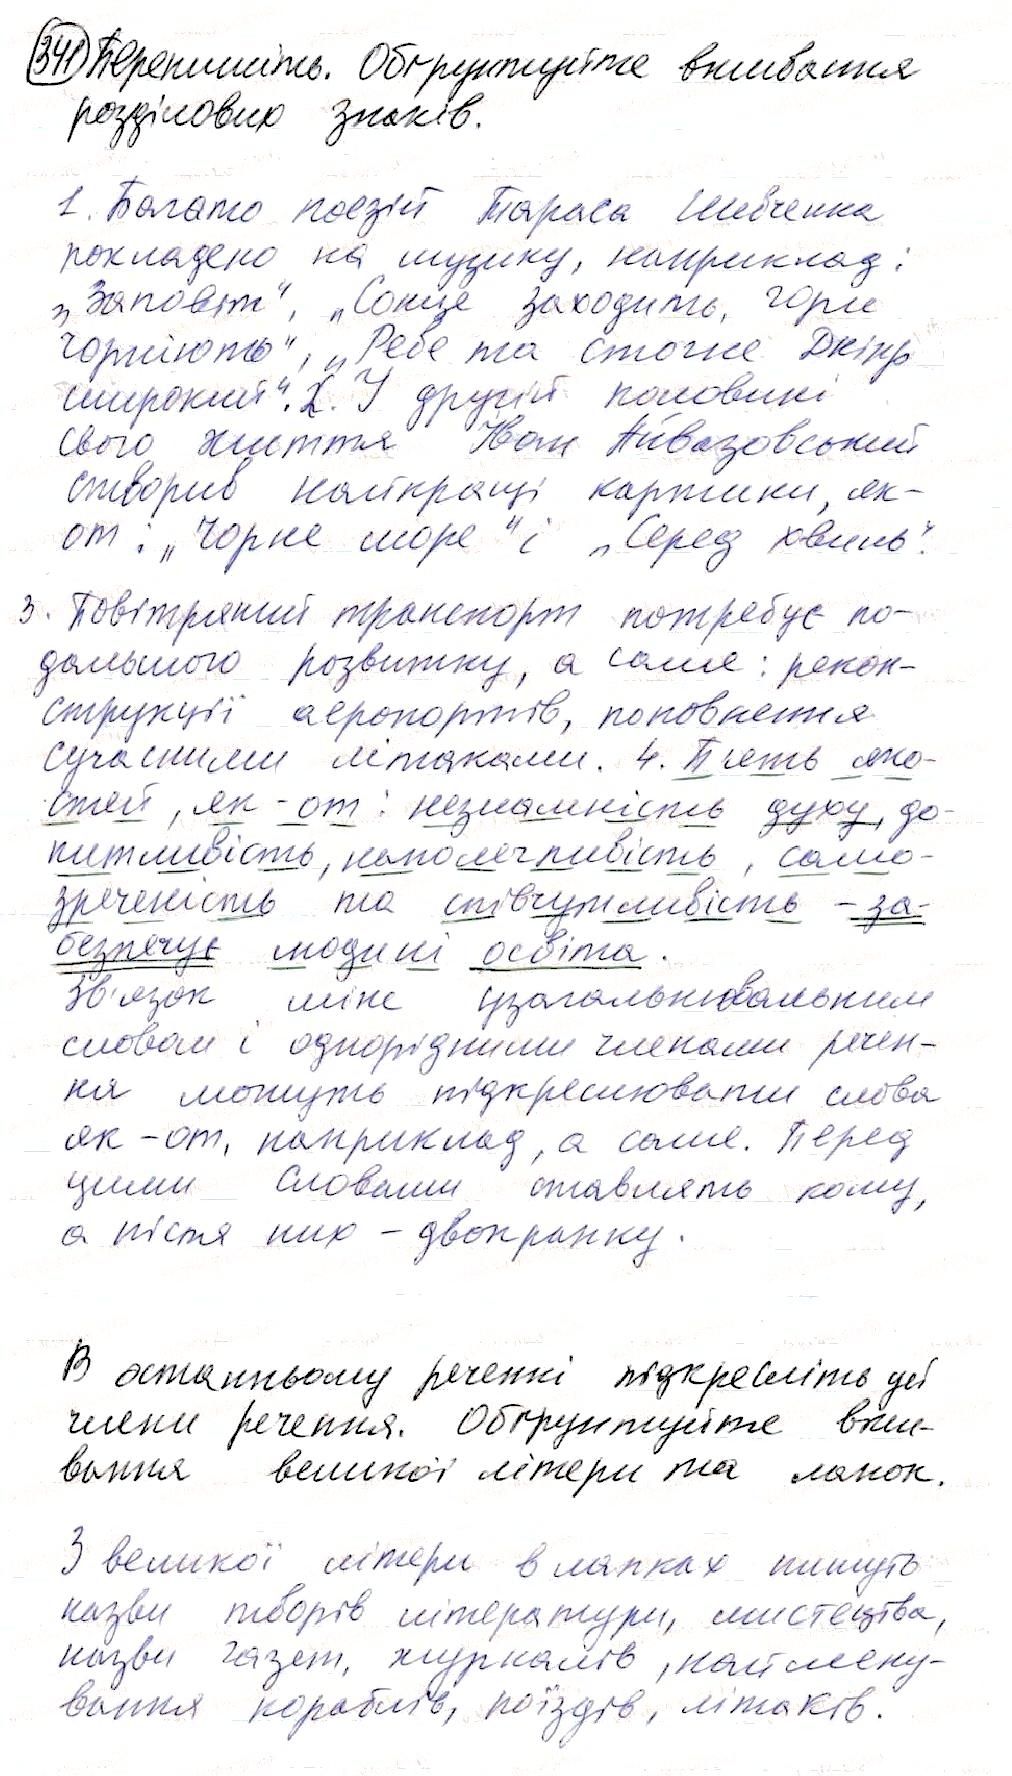 341 Перепишіть. Обґрунтуйте вживання
розділових знаків.
1. Багато поезій Тараса Шевченка
покладено на музику, наприклад:
„Заповіт“, „Сонце заходить, гори
чорніють“, „Реве та стогне Дніпр
широкий“. 2. У другій половині
свого життя Іван Айвазовський
створив найкращі картини, як-
от: „Чорне море“ і „Серед хвиль“.
3. Повітряний транспорт потребує по-
дальшого розвитку, а саме: рекон-
струкції аеропортів, поповнення
сучасними літаками. 4. П'ять яко-
стей, як-от: незламність духу, до-
питливість, наполегливість, само-
зреченість та співчутливість – за-
безпечує людині освіта.
Зв'язок між узагальнювальним
словом і однорідними членами речен-
ня можуть підкреслювати слова
як-от, наприклад, а саме. Перед
цими словами ставлять кому,
а після них – двокрапку.
В останньому реченні підкресліть усі
члени речення. Обґрунтуйте вжи-
вання великої літери та лапок.
З великої літери в лапках пишуть
назви творів літератури, мистецтва,
назви газет, журналів, наймену-
вання кораблів, поїздів, літаків.